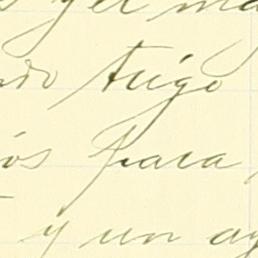 s y el ma
ndo trigo
ios para
y un ag